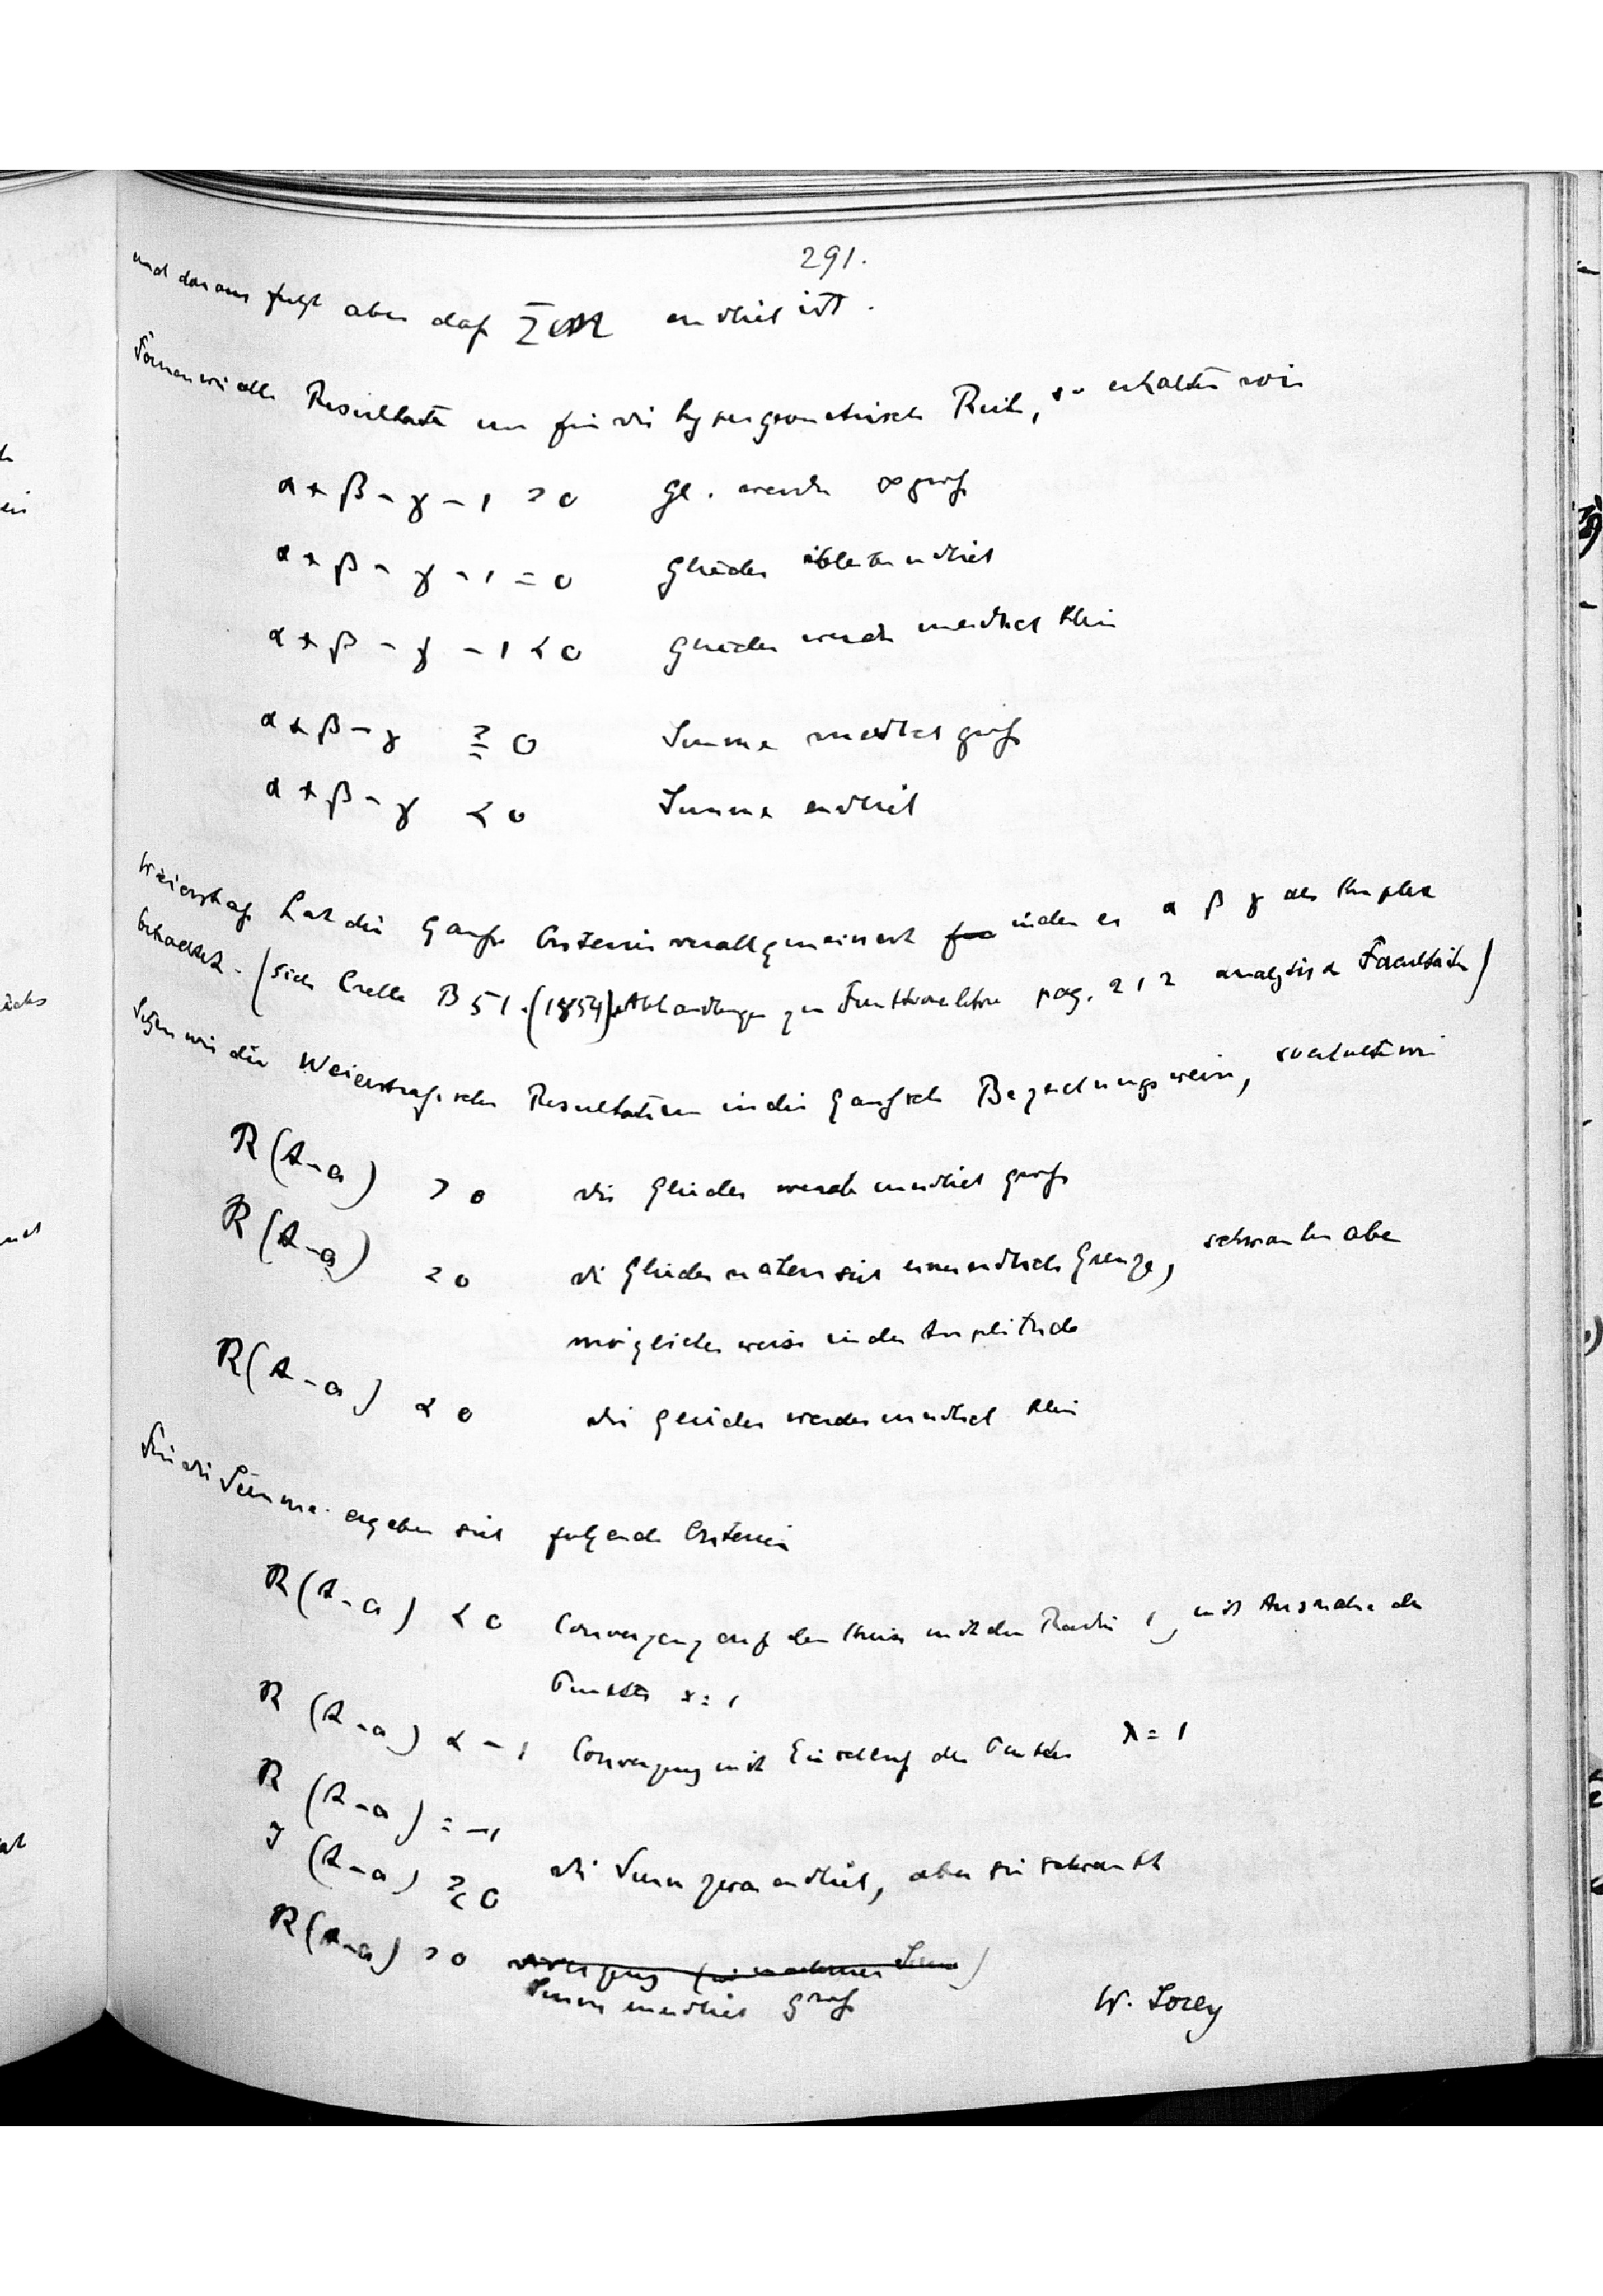 291.
und daraus folgt aber daß Σ endlich ist.
Formen wir alle Resultate um für die hypergeometrische Reihe, so erhalten wir
α + β - γ - 1 > 0 Gl. werden ∞ groß
α + β - γ - 1 = 0 Glieder bleiben endlich
α + β - γ - 1 < 0 Glieder werden unendlich klein
α + β - γ ≧ 0 Summe unendlich groß
α + β - γ < 0 Summe endlich
Weierstraß hat die Gauß Criterien verallgemeinert indem er α β γ als komplex
betrachtet. (Siehe Crelle B 51. (1854) Abhandlungen zur Funktionenlehre pag. 212 analytische Facultäten)
Setzen wir die Weierstraßischen Resultate um in die Gaußische Bezeichnungsweise, so erhalten wir
R (A-a) > 0 die Glieder werden unendlich groß
R (A-a) = 0 die Glieder nähern sich einer endlichen Grenze, schwanken aber
möglicher weise in der Amplitude
R (A-a) < 0 die Glieder werden unendlich klein
Für die Summe ergeben sich folgende Criterien
R (A-a) < 0 Convergenz auf dem Kreise mit dem Radius 1, mit Ausnahme des
Punktes x = 1
R (A-a) < -1 Convergenz mit Einschluß des Punktes x = 1
R (A-a) = -1
J (A-a) ≷ 0 die Summe zwar endlich, aber sie schwankt
R (A-a) > 0
Summe unendlich groß
W. Lorey